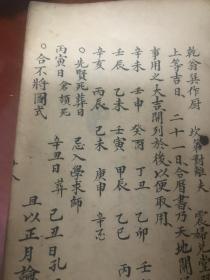 乾翁巽作厨 坎第對離夫 震婦兌堂
上等吉日二十一日合曆書乃天地開
事用之大吉開列於後以便取用
辛未 壬申 癸酉 丁丑 己卯 壬
壬辰 乙未 壬寅 甲辰 乙巳 丙
辛亥 丙辰 己未 庚申 辛
○先賢死葬日 忌入學求師
丙寅日倉頡死 辛丑日葬 己丑日孔
○合不將圖式
且以正月論